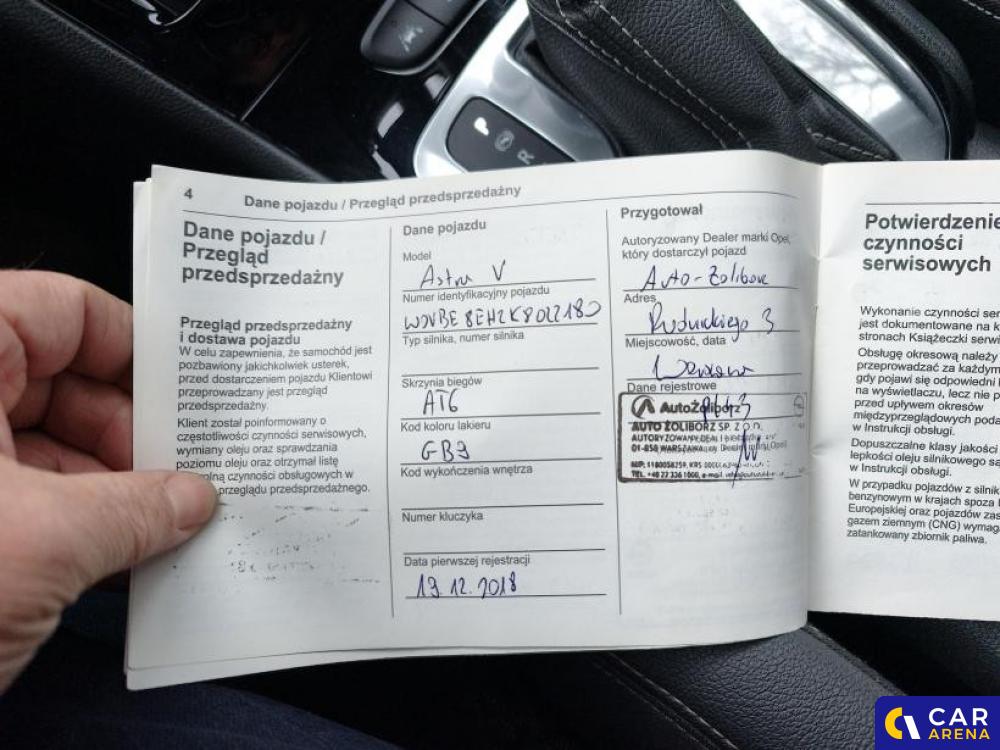 P
R
4
Dane pojazdu / Przegląd przedsprzedażny
Dane pojazdu /
Przegląd
przedsprzedażny
Przegląd przedsprzedażny
i dostawa pojazdu
W celu zapewnienia, że samochód jest
pozbawiony jakichkolwiek usterek,
przed dostarczeniem pojazdu Klientowi
przeprowadzany jest przegląd
przedsprzedażny.
Klient został poinformowany o
częstotliwości czynności serwisowych,
wymiany oleju oraz sprawdzania
poziomu oleju oraz otrzymał listę
czynności obsługowych w
przeglądu przedsprzedażnego.
Dane pojazdu
Model
Astra V
Numer identyfikacyjny pojazdu
W0VBE8EH2K8022180
Typ silnika, numer silnika
Skrzynia biegów
AT6
Kod koloru lakieru
Kod wykończenia wnętrza
Numer kluczyka
Data pierwszej rejestracji
19.12.2018
Przygotował
Autoryzowany Dealer marki Opel,
który dostarczył pojazd
Auto-Żoliborz
Adres
Rudnickiego 3
Miejscowość, data
Warszawa
Dane rejestrowe
AutoŻoliborz
AUTO ŻOLIBORZ SP. Z O.O.
AUTORYZOWANY DEALER
01-858 WARSZAWA
NIP: 1180058259, KRS
TEL. +48 22 336 1000, e-mail:
Potwierdzenie
czynności
serwisowych
Wykonanie czynności
jest dokumentowane na
stronach Książeczki
Obsługę okresową należy
przeprowadzać za każdym
gdy pojawi się odpowiedni
na wyświetlaczu, lecz nie
przed upływem okresów
międzyprzeglądowych
w Instrukcji obsługi.
Dopuszczalne klasy jakości
lepkości oleju silnikowego
w Instrukcji obsługi.
W przypadku pojazdów z
benzynowym w krajach spoza
Europejskiej oraz pojazdów
gazem ziemnym (CNG)
zatankowany zbiornik paliwa.
CAR
ARENA